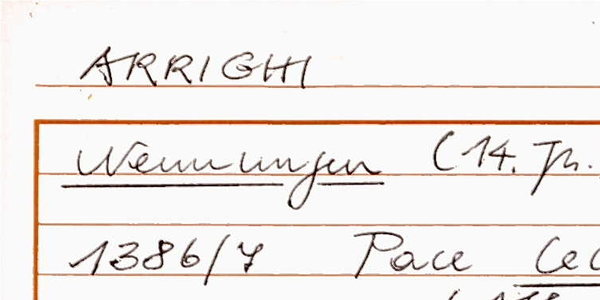 ARRIGHI
Nennungen (14. Jh.
1386/7 Pace